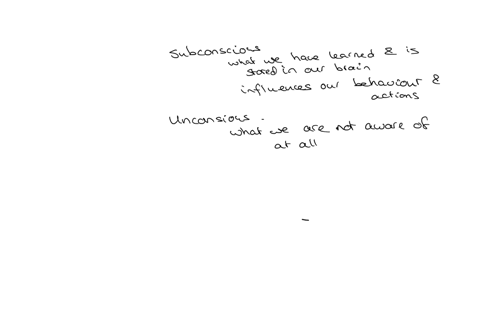 Subconscious
what we have learned & is
stored in our brain
influences our behaviour &
actions
Unconsious.
what we are not aware of
at all